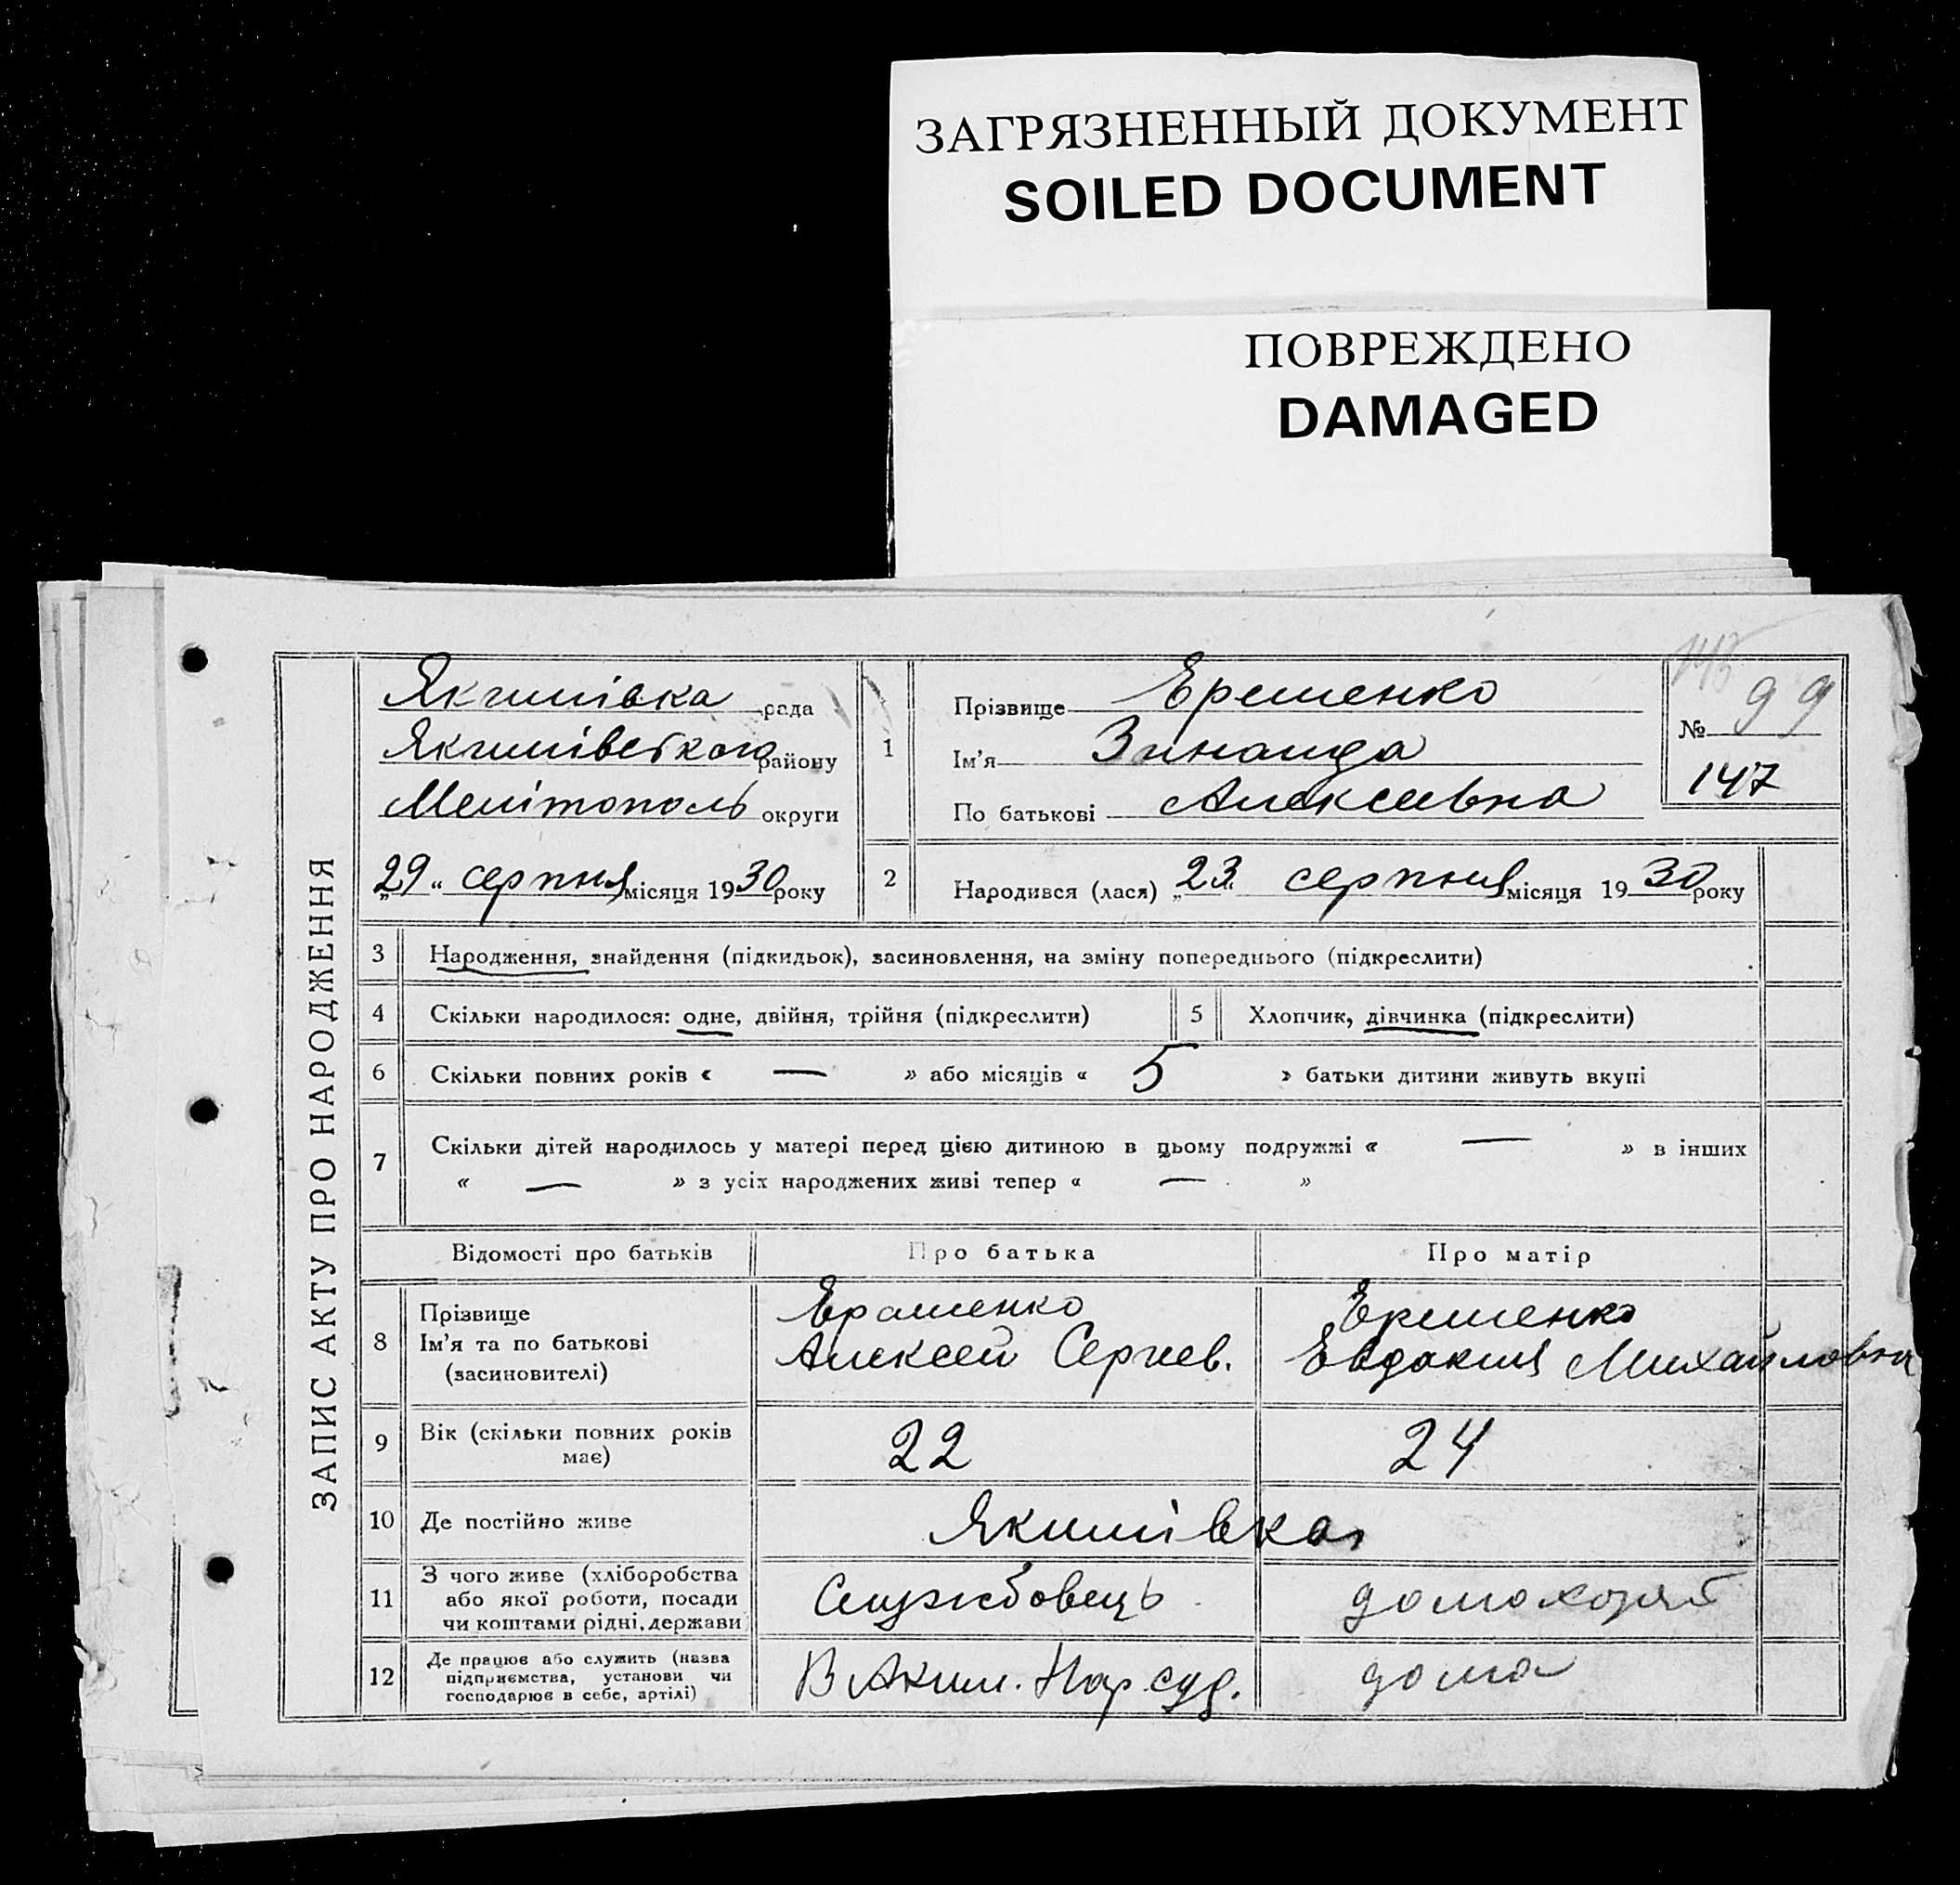 ЗАГРЯЗНЕННЫЙ ДОКУМЕНТ
SOILED DOCUMENT
ПОВРЕЖДЕНО
DAMAGED
ЗАПИС АКТУ ПРО НАРОДЖЕННЯ
Якимівка рада
Якимівського району
Мелітополь округи
„29“ серпня місяця 1930 року
1
Прізвище Ерешенко
Ім'я Зинаида
По батькові Алексеевна
№ 99
147
2
Народився (лася) „23“ серпня місяця 1930 року
3 Народження, знайдення (підкидьок), засиновлення, на зміну попереднього (підкреслити)
4 Скільки народилося: одне, двійня, трійня (підкреслити) 5 Хлопчик, дівчинка (підкреслити)
6 Скільки повних років « — » або місяців « 5 » батьки дитини живуть вкупі
7 Скільки дітей народилось у матері перед цією дитиною в цьому подружжі « — » в інших
« — » з усіх народжених живі тепер « — »
Відомості про батьків Про батька Про матір
8 Прізвище
Ім'я та по батькові
(засиновителі)
Ерошенко
Алексей Сергеев.
Ерешенко
Евдакия Михайловна
9 Вік (скільки повних років
має)
22 24
10 Де постійно живе Якимівка
11 З чого живе (хліборобства
або якої роботи, посади
чи коштами рідні, держави
Службовець
12 Де працює або служить (назва
підприємства, установи чи
господарює в себе, артілі)
В Аким. Нар. суд. дома